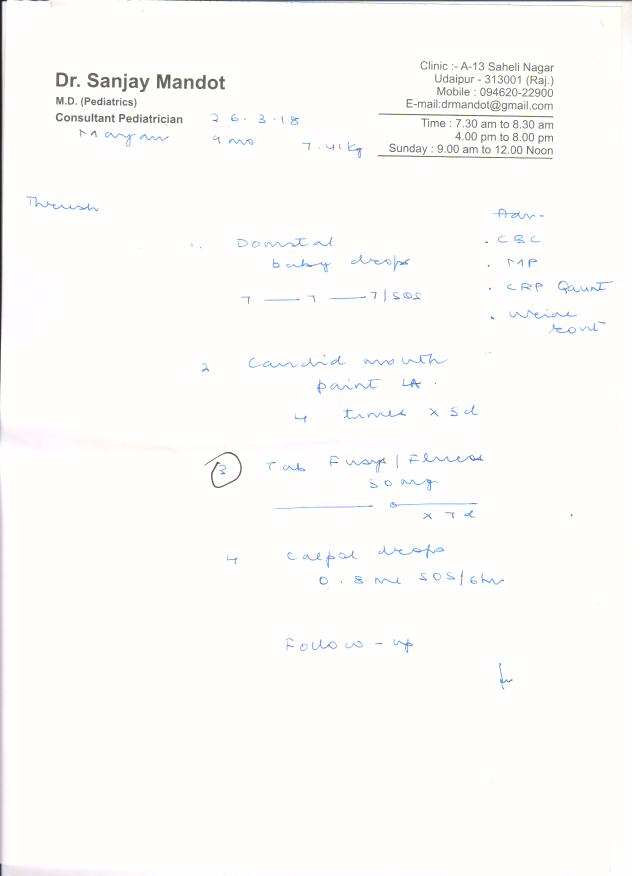 Dr. Sanjay Mandot
M.D. (Pediatrics)
Consultant Pediatrician
Clinic :- A-13 Saheli Nagar
Udaipur - 313001 (Raj.)
Mobile : 094620-22900
E-mail:drmandot@gmail.com
Time : 7.30 am to 8.30 am
4.00 pm to 8.00 pm
Sunday : 9.00 am to 12.00 Noon
26.3.18
7.41kg
Thrush
Adv-
. CBC
. MP
. CRP Qaunt
1. Domstal
baby drops
7 — 7 — 7/SOS
2 Candid mouth
paint LA.
4 times x 5d
3 Tab
50mg
x 7d
4 Calpol drops
0.8 ml SOS/6hr
Follow-up